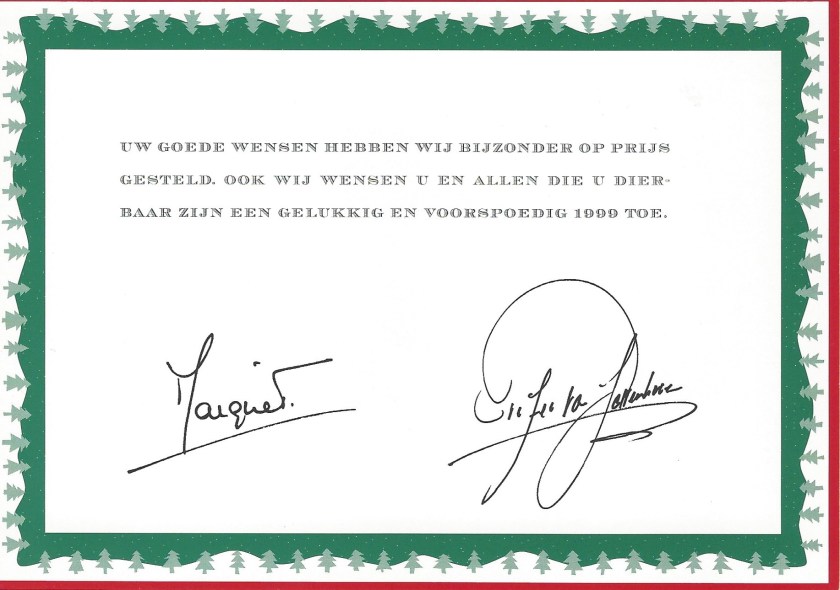 UW GOEDE WENSEN HEBBEN WIJ BIJZONDER OP PRIJS
GESTELD. OOK WIJ WENSEN U EN ALLEN DIE U DIER-
BAAR ZIJN EEN GELUKKIG EN VOORSPOEDIG 1999 TOE.
Margriet.